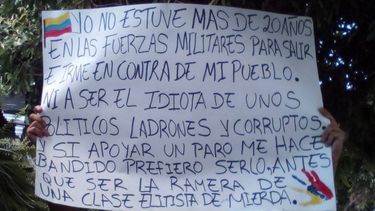 YO NO ESTUVE MAS DE 20 AÑOS
EN LAS FUERZAS MILITARES PARA SALIR
E IRME EN CONTRA DE MI PUEBLO.
NI A SER EL IDIOTA DE UNOS
POLITICOS LADRONES Y CORRUPTOS.
Y SI APOYAR UN PARO ME HACE
BANDIDO PREFIERO SERLO. ANTES
QUE SER LA RAMERA DE
UNA CLASE ELITISTA DE MIERDA.